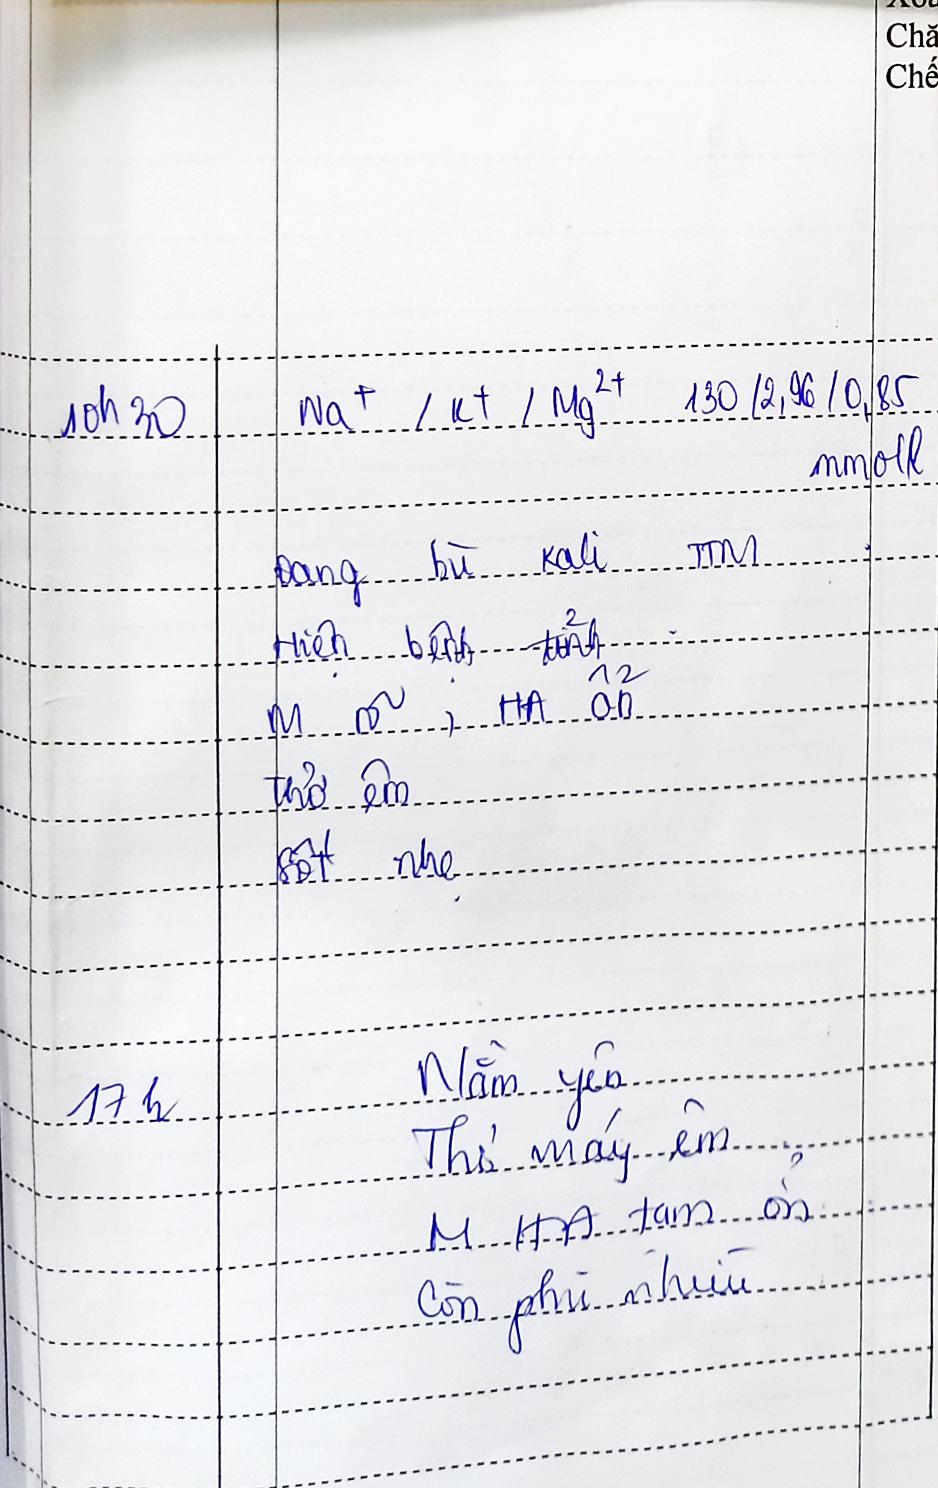 Chă
Chế
10h30 Na+ / K+ / Mg2+ 130/2,96/0,85
mmol/l
Đang bù kali TTM
Hiện bệnh tỉnh
M rõ, HA ổn
Thở êm
Sốt nhẹ
17h Nằm yên
Thở máy êm
M HA tạm ổn
Còn phù nhiều